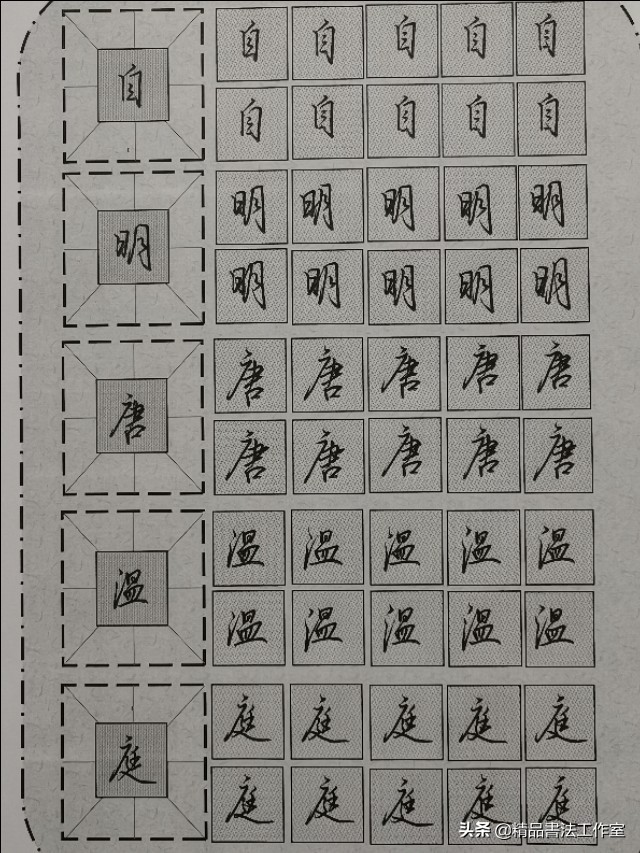 自 自 自 自 自 自
自 自 自 自 自
明 明 明 明 明 明
明 明 明 明 明
唐 唐 唐 唐 唐 唐
唐 唐 唐 唐 唐
温 温 温 温 温 温
温 温 温 温 温
庭 庭 庭 庭 庭 庭
庭 庭 庭 庭 庭
头条 @精品書法工作室